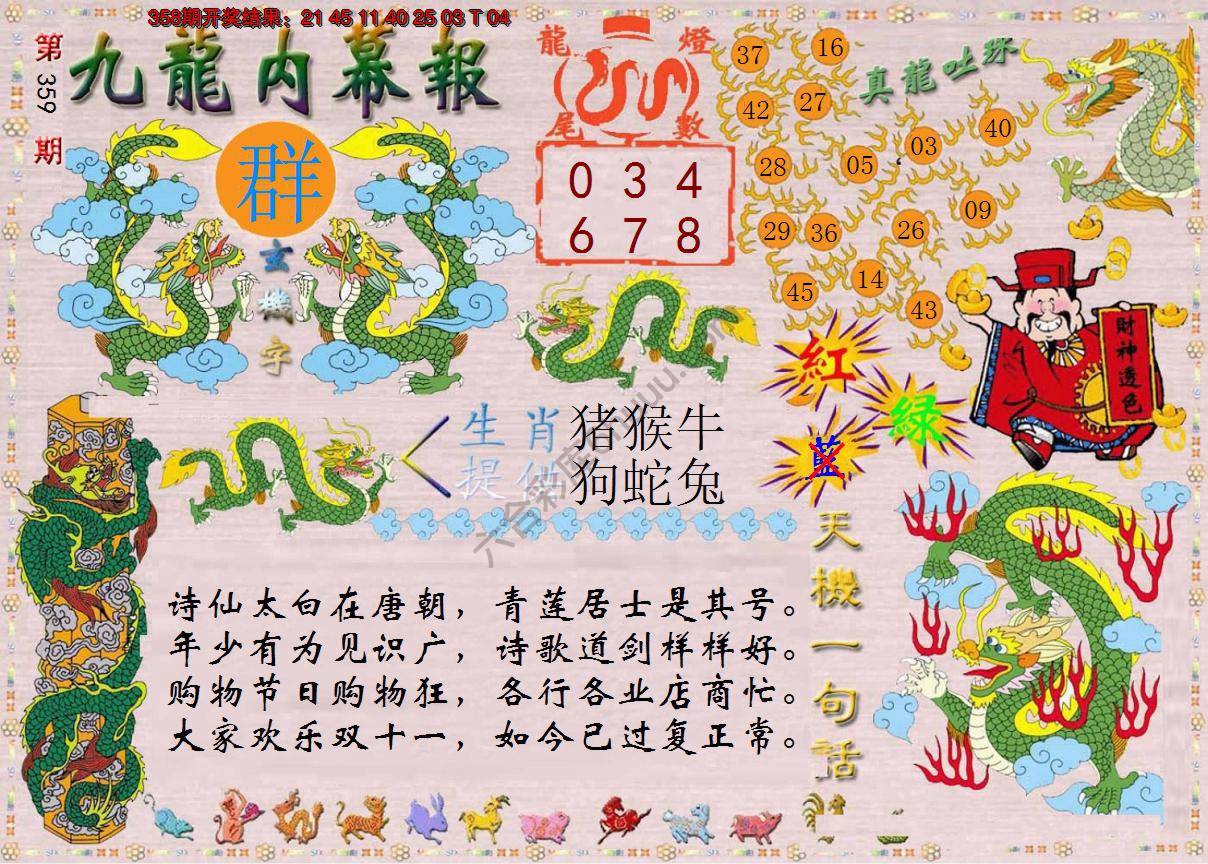 358期开奖结果：21 45 11 40 25 03 T 04
第359期
九龍内幕報
群
玄機字
龍燈
尾數
0 3 4
6 7 8
真龍吐珠
37
16
42
27
28
05
03
40
29
36
26
09
45
14
43
財神透色
紅
綠
藍
生肖 猪猴牛
提供 狗蛇兔
天機一句話
诗仙太白在唐朝，青莲居士是其号。
年少有为见识广，诗歌道剑样样好。
购物节日购物狂，各行各业店商忙。
大家欢乐双十一，如今已过复正常。